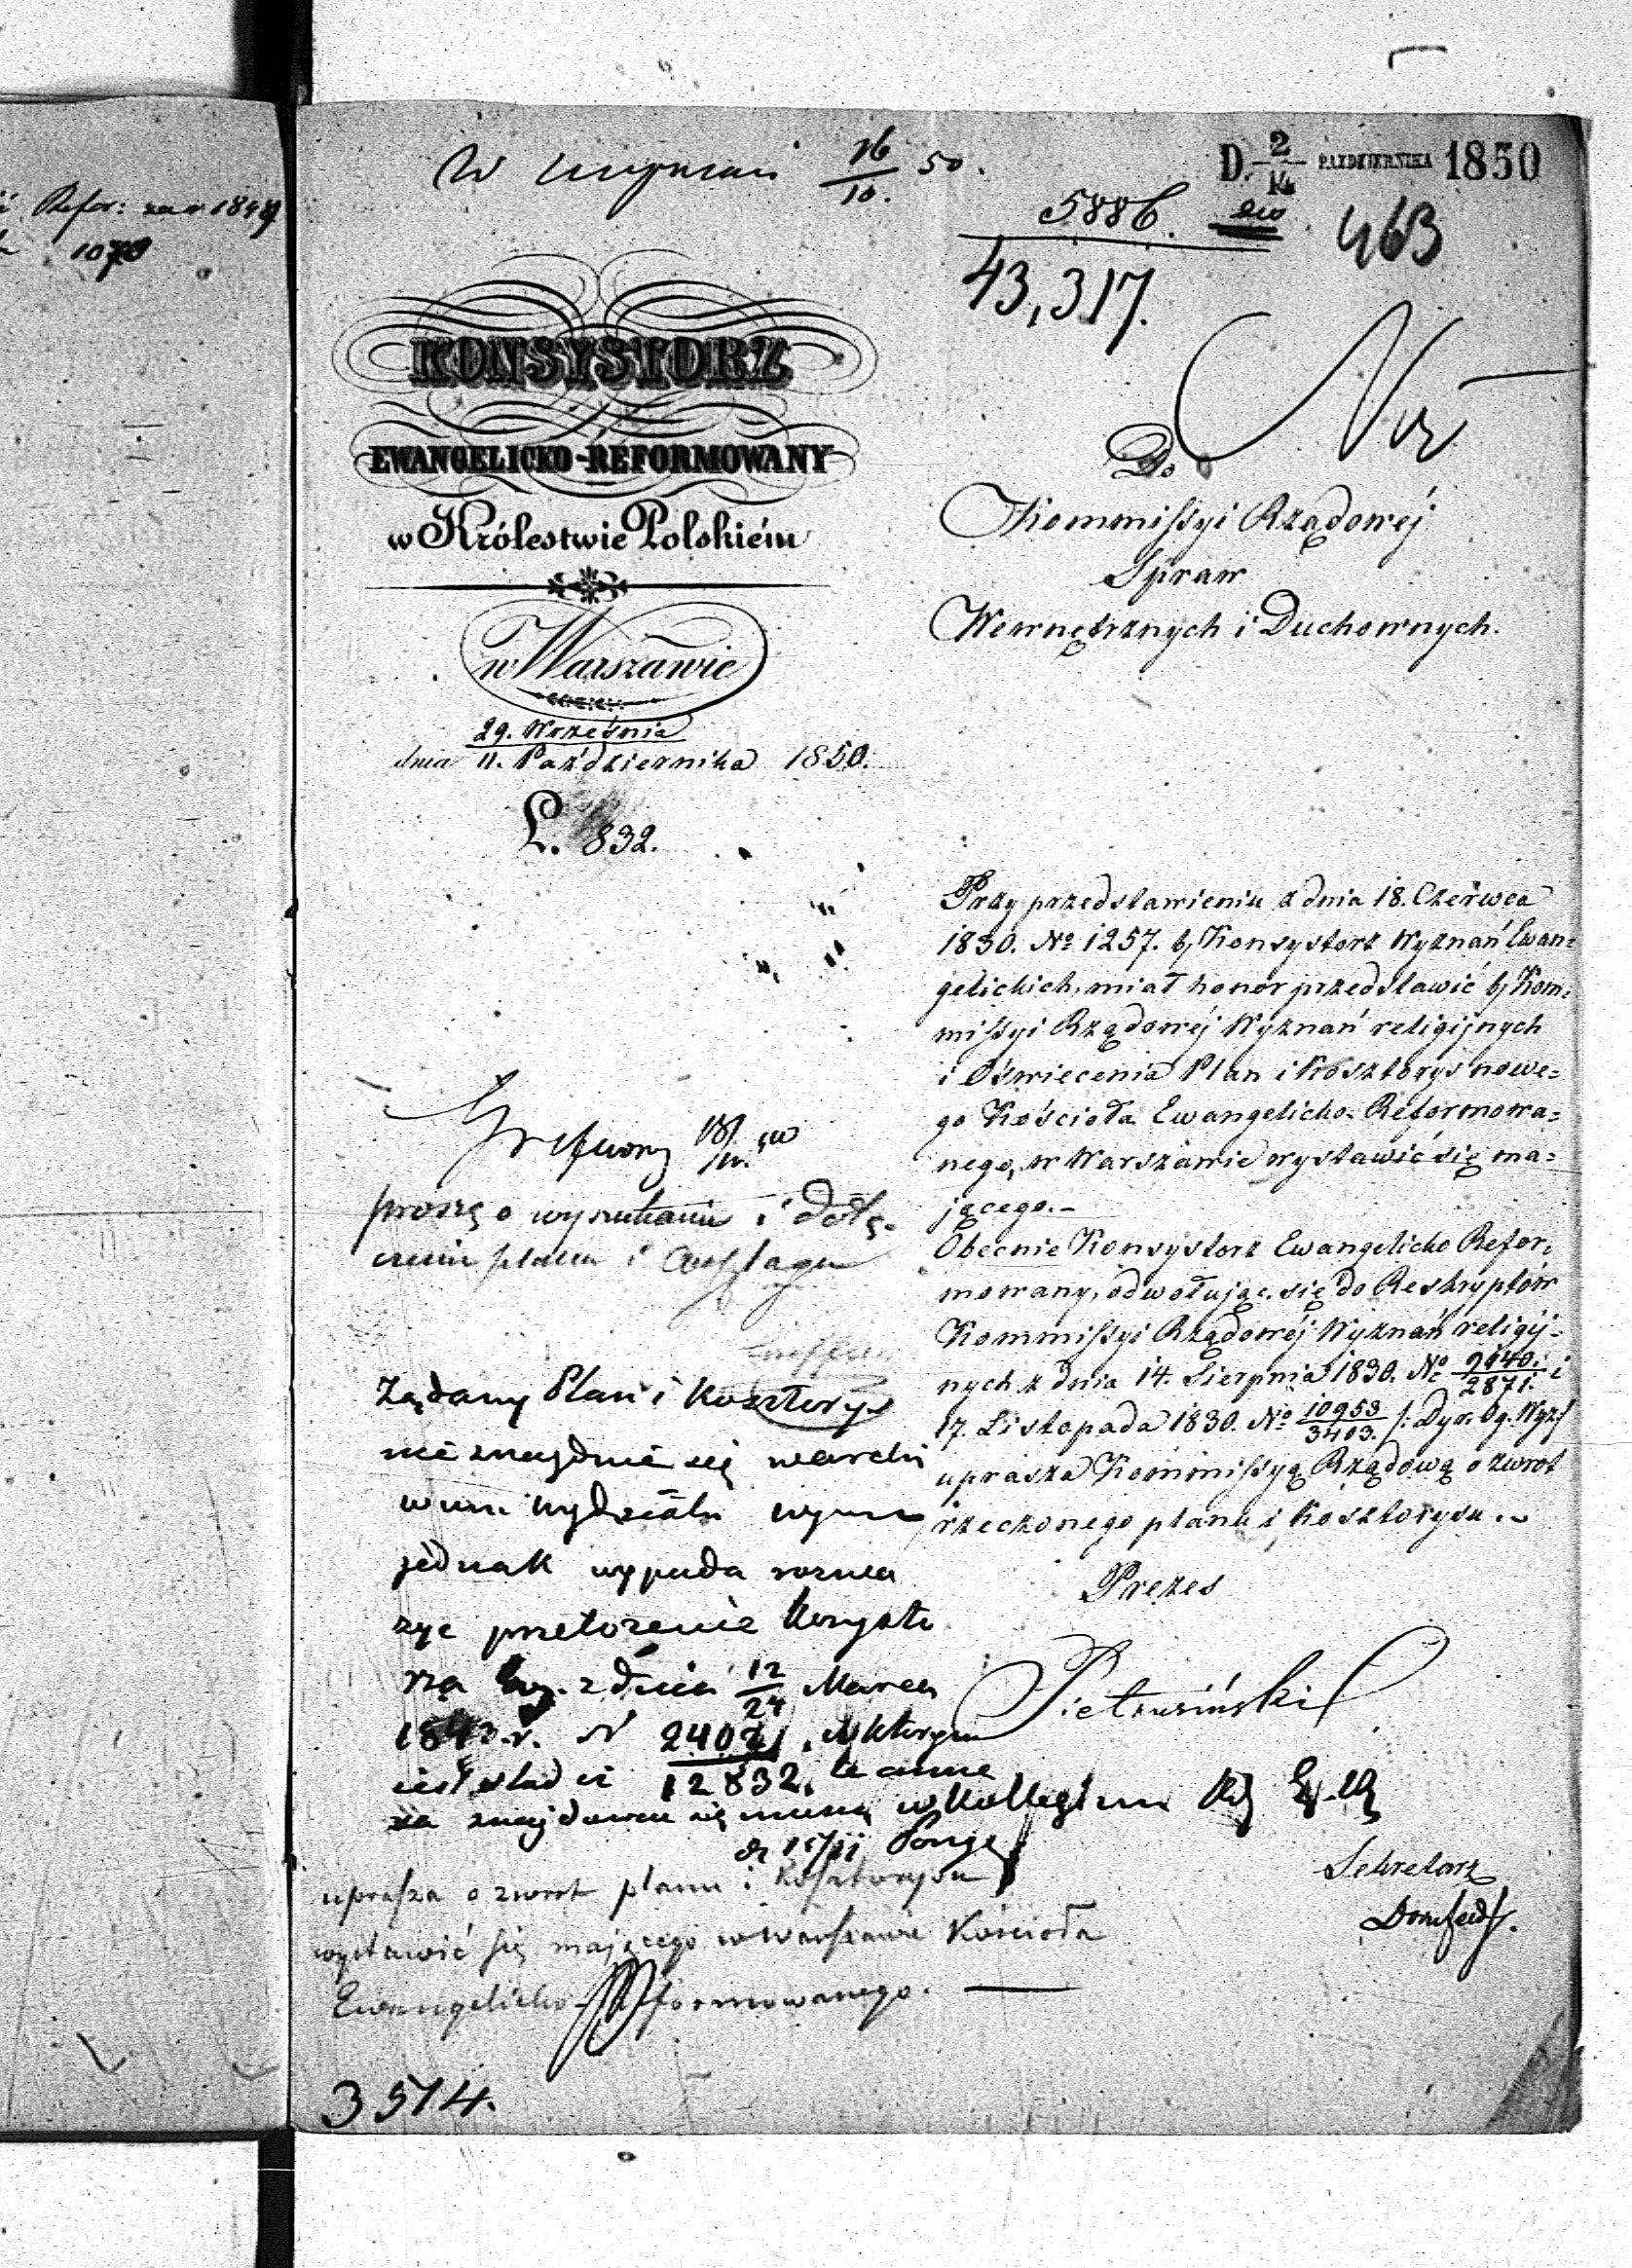 ć Refor: za r 1849
1070
W 16/10. 50.
D. 2/14 PAZDZIERNIKA 1850
5886.
463
43,317.
KONSYSTORZ
EWANGELICKO-REFORMOWANY
w Królestwie Polskiém
w Warszawie
29. Września
dnia 11. Października 1850.
L. 832.
Do
Kommissyi Rządowéj
Spraw
Wewnętrznych i Duchownych.
Przy przedstawieniu z dnia 18. Czerwca
1830. No 1257. b, Konsystorz Wyznań Ewan=
gelickich, miał honor przedstawić b, Kom=
missyi Rządowéj Wyznań religijnych
i Oświecenia Plan i Kosztorys nowe=
go Kościoła Ewangelicko-Reformowa=
nego, w Warszawie wystawić się ma=
jącego.-
Obecnie Konsystorz Ewangelicko Refor=
mowany, odwołując się do Reskryptów
Kommissyi Rządowéj Wyznań religij=
nych z dnia 14. Sierpnia 1830. No 9940./2871. i
17. Listopada 1830. No 10953/3403. /: Dyr. Og. Wyz:/
uprasza Kommissyą Rządową o zwrot
rzeczonego planu i Kosztorysu.-
Prezes
Pietrusiński
Sekretarz
proszę o wyszukanie i dołą-
czenie planu i
Żądany Plan i Kosztorys
nie znajduie się w archi
wum wydziału
jednak wypada
żyć przełożenie Konsysto
rza z dnia 12/24 Marca
N 2402/12832, w którym
iest ślad iż te
znajdować się muszą w Kollegium
uprasza o zwrot planu i Kosztorysu
wystawić się mającego w Warszawie Kościoła
Ewangelicko-Reformowanego. —
3514.